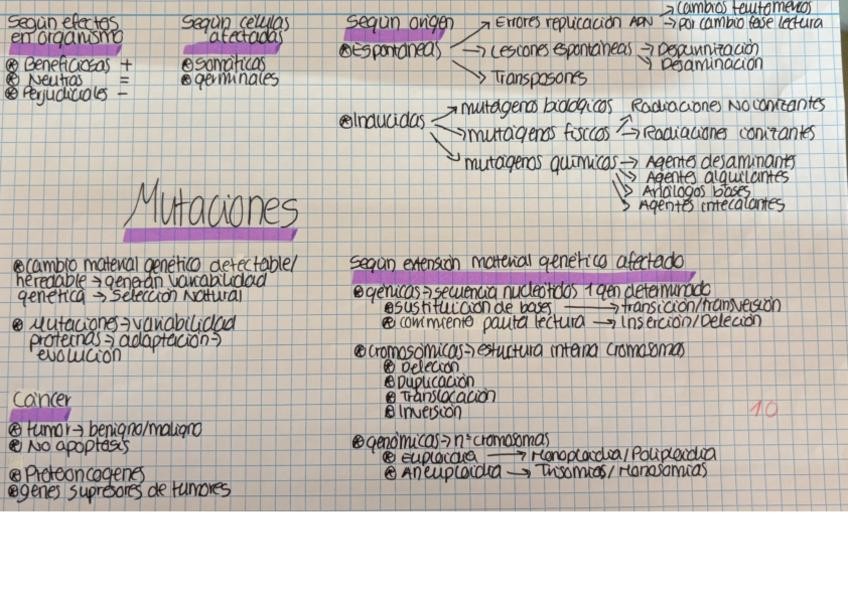 Según efectos
en organismo
Beneficiosas +
Neutras =
Perjudiciales -
Según células
afectadas
somáticas
germinales
Según origen
Espontáneas
→ Errores replicación ADN → cambios tautómeros
→ por cambio fase lectura
→ Lesiones espontáneas → Depurinización
→ Desaminación
→ Transposones
Inducidas
→ mutágenos biológicos
→ mutágenos físicos → Radiaciones No ionizantes
→ Radiaciones ionizantes
→ mutágenos químicos → Agentes desaminantes
→ Agentes alquilantes
→ Análogos bases
→ Agentes intecalantes
Mutaciones
cambio material genético detectable/
heredable → generan variabilidad
genética → Selección Natural
Mutaciones → variabilidad
proteínas → adaptación →
evolución
Cáncer
tumor → benigno/maligno
No apoptosis
Protooncogenes
genes supresores de tumores
Según extensión material genético afectado
génicas → secuencia nucleótidos 1 gen determinado
sustitución de bases → transición/transversión
corrimiento pauta lectura → Inserción/Deleción
cromosómicas → estuctura interna cromosomas
Deleción
Duplicación
Translocación
Inversión
genómicas → nº cromosomas
Euploidía → Monoploidía/Poliploidía
Aneuploidía → Trisomías/Monosomías
10